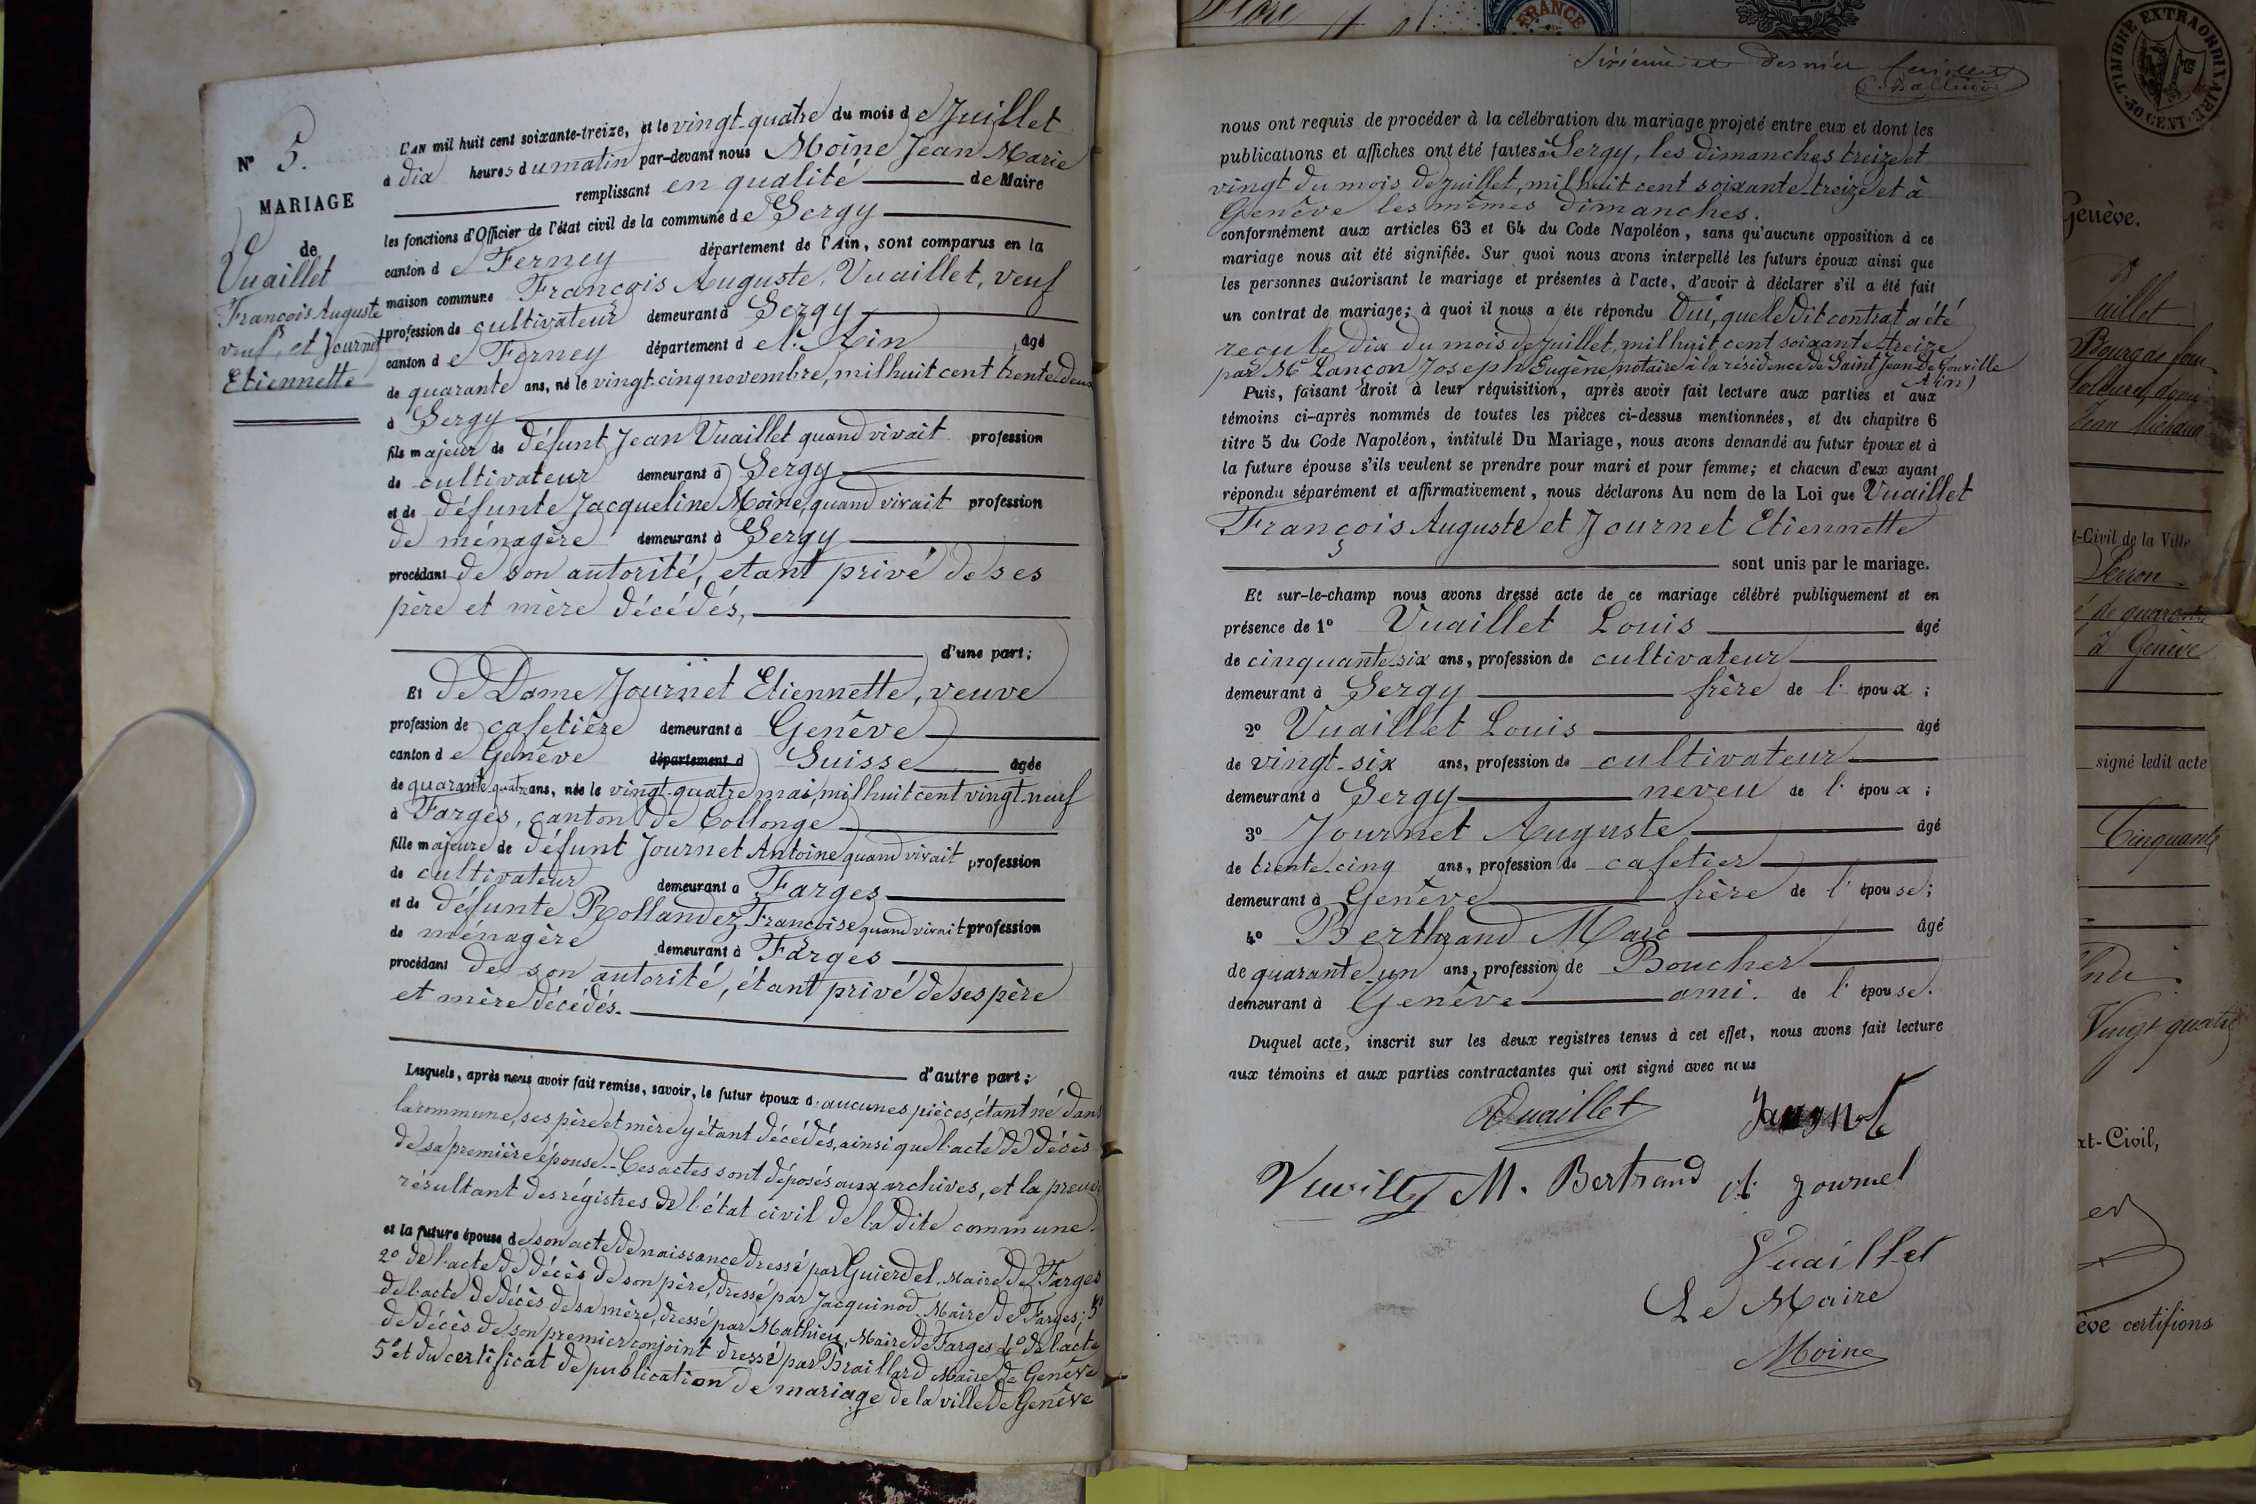 N° 5.
MARIAGE
de
Vuaillet
François Auguste
veuf, et Journet
Etiennette
L'AN mil huit cent soixante-treize, et le vingt-quatre du mois de Juillet
à dix heures du matin par-devant nous Moine Jean Marie
remplissant en qualité de Maire
les fonctions d'Officier de l'état civil de la commune de Sergy
canton de Ferney département de l'Ain, sont comparus en la
maison commune François Auguste Vuaillet, veuf
profession de cultivateur demeurant à Sergy
canton de Ferney département de l'Ain âgé
de quarante ans, né le vingt-cinq novembre, mil huit cent trente deux
à Sergy
fils majeur de défunt Jean Vuaillet quand vivait profession
de cultivateur demeurant à Sergy
et de défunte Jacqueline Moine, quand vivait profession
de ménagère demeurant à Sergy
procédant de son autorité, étant privé de ses
père et mère décédés,
d'une part;
Et de Dame Journet Etiennette, veuve
profession de cafetière demeurant à Genève
canton de Genève département d Suisse âgée
de quarante quatre ans, née le vingt-quatre mai, mil huit cent vingt-neuf
à Farges, canton de Collonge
fille majeure de défunt Journet Antoine quand vivait profession
de cultivateur demeurant à Farges
et de défunte Rollandez Françoise quand vivait profession
de ménagère demeurant à Farges
procédant de son autorité, étant privé de ses père
et mère décédés.
d'autre part;
Lesquels, après nous avoir fait remise, savoir, le futur époux d'aucunes pièces, étant né dans
la commune, ses père et mère y étant décédés, ainsi que l'acte de décès
de sa première épouse.. Ces actes sont déposés aux archives, et la preuve
résultant des régistres de l'état civil de la dite commune.
et la future épouse de son acte de naissance dressé par Guierdel, Maire de Farges
2° de l'acte de décès de son père, dressé par Jacquinod, Maire de Farges; 3°
de l'acte de décès de sa mère, dressé par Mathieu, Maire de Farges 4° de l'acte
de décès de son premier conjoint dressé par Braillard Maire de Genève
5° et du certificat de publication de mariage de la ville de Genève
et dernier feuillet
nous ont requis de procéder à la célébration du mariage projeté entre eux et dont les
publications et affiches ont été faites à Sergy, les dimanches treize et
vingt du mois de Juillet, mil huit cent soixante-treize et à
Genève les mêmes dimanches.
conformément aux articles 63 et 64 du Code Napoléon, sans qu'aucune opposition à ce
mariage nous ait été signifiée. Sur quoi nous avons interpellé les futurs époux ainsi que
les personnes autorisant le mariage et présentes à l'acte, d'avoir à déclarer s'il a été fait
un contrat de mariage; à quoi il nous a été répondu Oui, que le dit contrat a été
reçu le dix du mois de Juillet, mil huit cent soixante-treize
par Me Lançon Joseph Eugène, notaire à la résidence de Saint Jean de Gonville
(Ain)
Puis, faisant droit à leur réquisition, après avoir fait lecture aux parties et aux
témoins ci-après nommés de toutes les pièces ci-dessus mentionnées, et du chapitre 6
titre 5 du Code Napoléon, intitulé Du Mariage, nous avons demandé au futur époux et à
la future épouse s'ils veulent se prendre pour mari et pour femme; et chacun d'eux ayant
répondu séparément et affirmativement, nous déclarons Au nom de la Loi que Vuaillet
François Auguste et Journet Etiennette
sont unis par le mariage.
Et sur-le-champ nous avons dressé acte de ce mariage célébré publiquement et en
présence de 1° Vuaillet Louis âgé
de cinquante-six ans, profession de cultivateur
demeurant à Sergy frère de l'époux;
2° Vuaillet Louis âgé
de vingt-six ans, profession de cultivateur
demeurant à Sergy neveu de l'époux;
3° Journet Auguste âgé
de trente-cinq ans, profession de cafetier
demeurant à Genève frère de l'épouse;
4° Berthrand Marc âgé
de quarante-un ans, profession de Boucher
demeurant à Genève ami de l'épouse.
Duquel acte, inscrit sur les deux registres tenus à cet effet, nous avons fait lecture
aux témoins et aux parties contractantes qui ont signé avec nous
Vuaillet
M. Bertrand
Vuaillet
Le Maire
Moine
FRANCE
TIMBRE EXTRAORDINAIRE
50 CENT.
Genève.
uaillet
Jean Michaud
t-Civil de la Ville
Perron
é de quarante
à Genève
signé ledit acte
Cinquante
Vingt quatre
at-Civil,
ève certifions